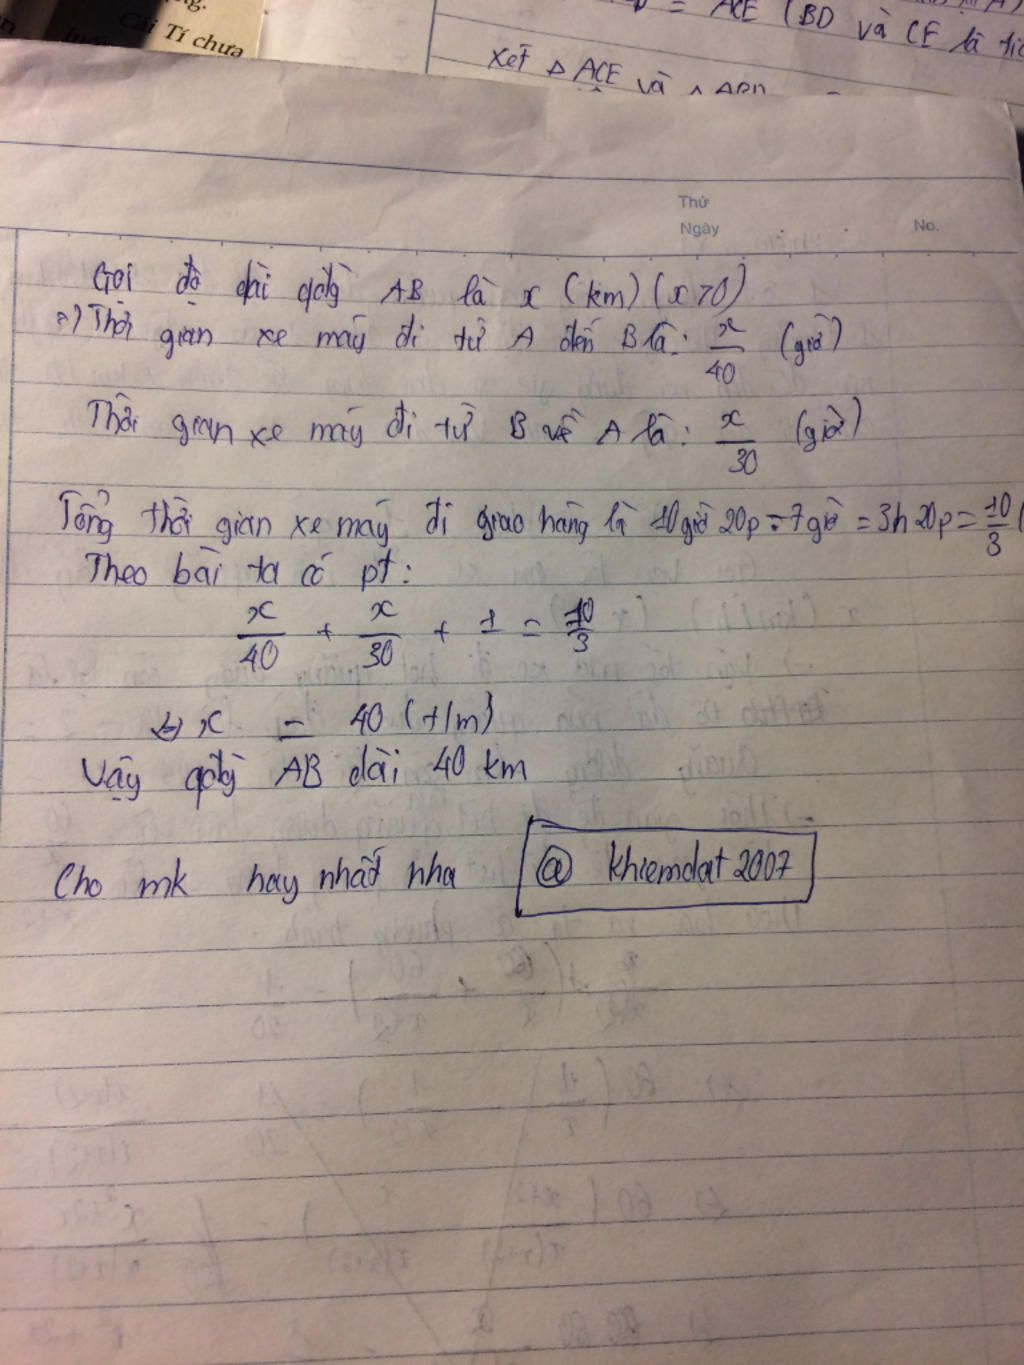 Cái Tí chưa
= ACE (BD và CE là
Xét △ ACE và △ ABD
Thứ
Ngày
No.
Gọi độ dài qđg AB là x (km) (x>0)
=) Thời gian xe máy đi từ A đến B là: x/40 (giờ)
Thời gian xe máy đi từ B về A là: x/30 (giờ)
Tổng thời gian xe máy đi giao hàng là 10giờ 20p - 7giờ = 3h20p = 10/3 (
Theo bài ta có pt:
x/40 + x/30 + 1 = 10/3
<=> x = 40 (t/m)
Vậy qđg AB dài 40 km
Cho mk hay nhất nha @ khiemdat2007